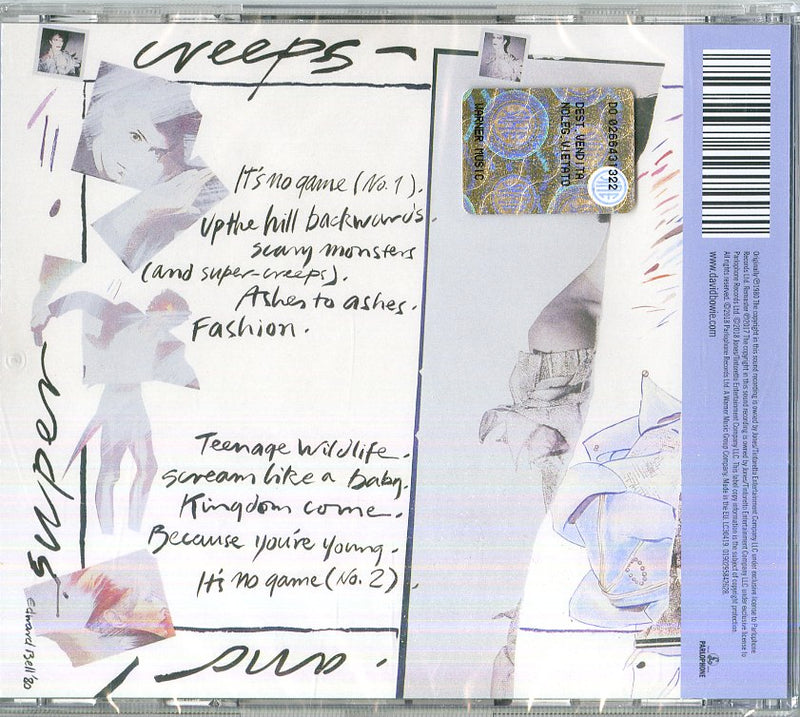 creeps -
It's no game (No. 1).
Up the hill backwards.
scary monsters
(and super-creeps).
Ashes to ashes.
Fashion.
Teenage Wildlife.
Scream like a baby.
Kingdom come.
Because you're young.
It's no game (No. 2).
super
and
Edward Bell '80
DO 0266431 322
DEST. VENDITA
NOLEG. VIETATO
WARNER MUSIC
SIAE
Originally ℗1980 The copyright in this sound recording is owned by Jones/Tintoretto Entertainment Company LLC under exclusive license to Parlophone
Records Ltd. Remaster ℗2017 The copyright in this sound recording is owned by Jones/Tintoretto Entertainment Company LLC under exclusive license to
Parlophone Records Ltd. ©2018 Jones/Tintoretto Entertainment Company LLC. This label copy information is the subject of copyright protection.
All rights reserved. ©2018 Parlophone Records Ltd. A Warner Music Group Company. Made in the EU. LC30419.
www.davidbowie.com
PARLOPHONE